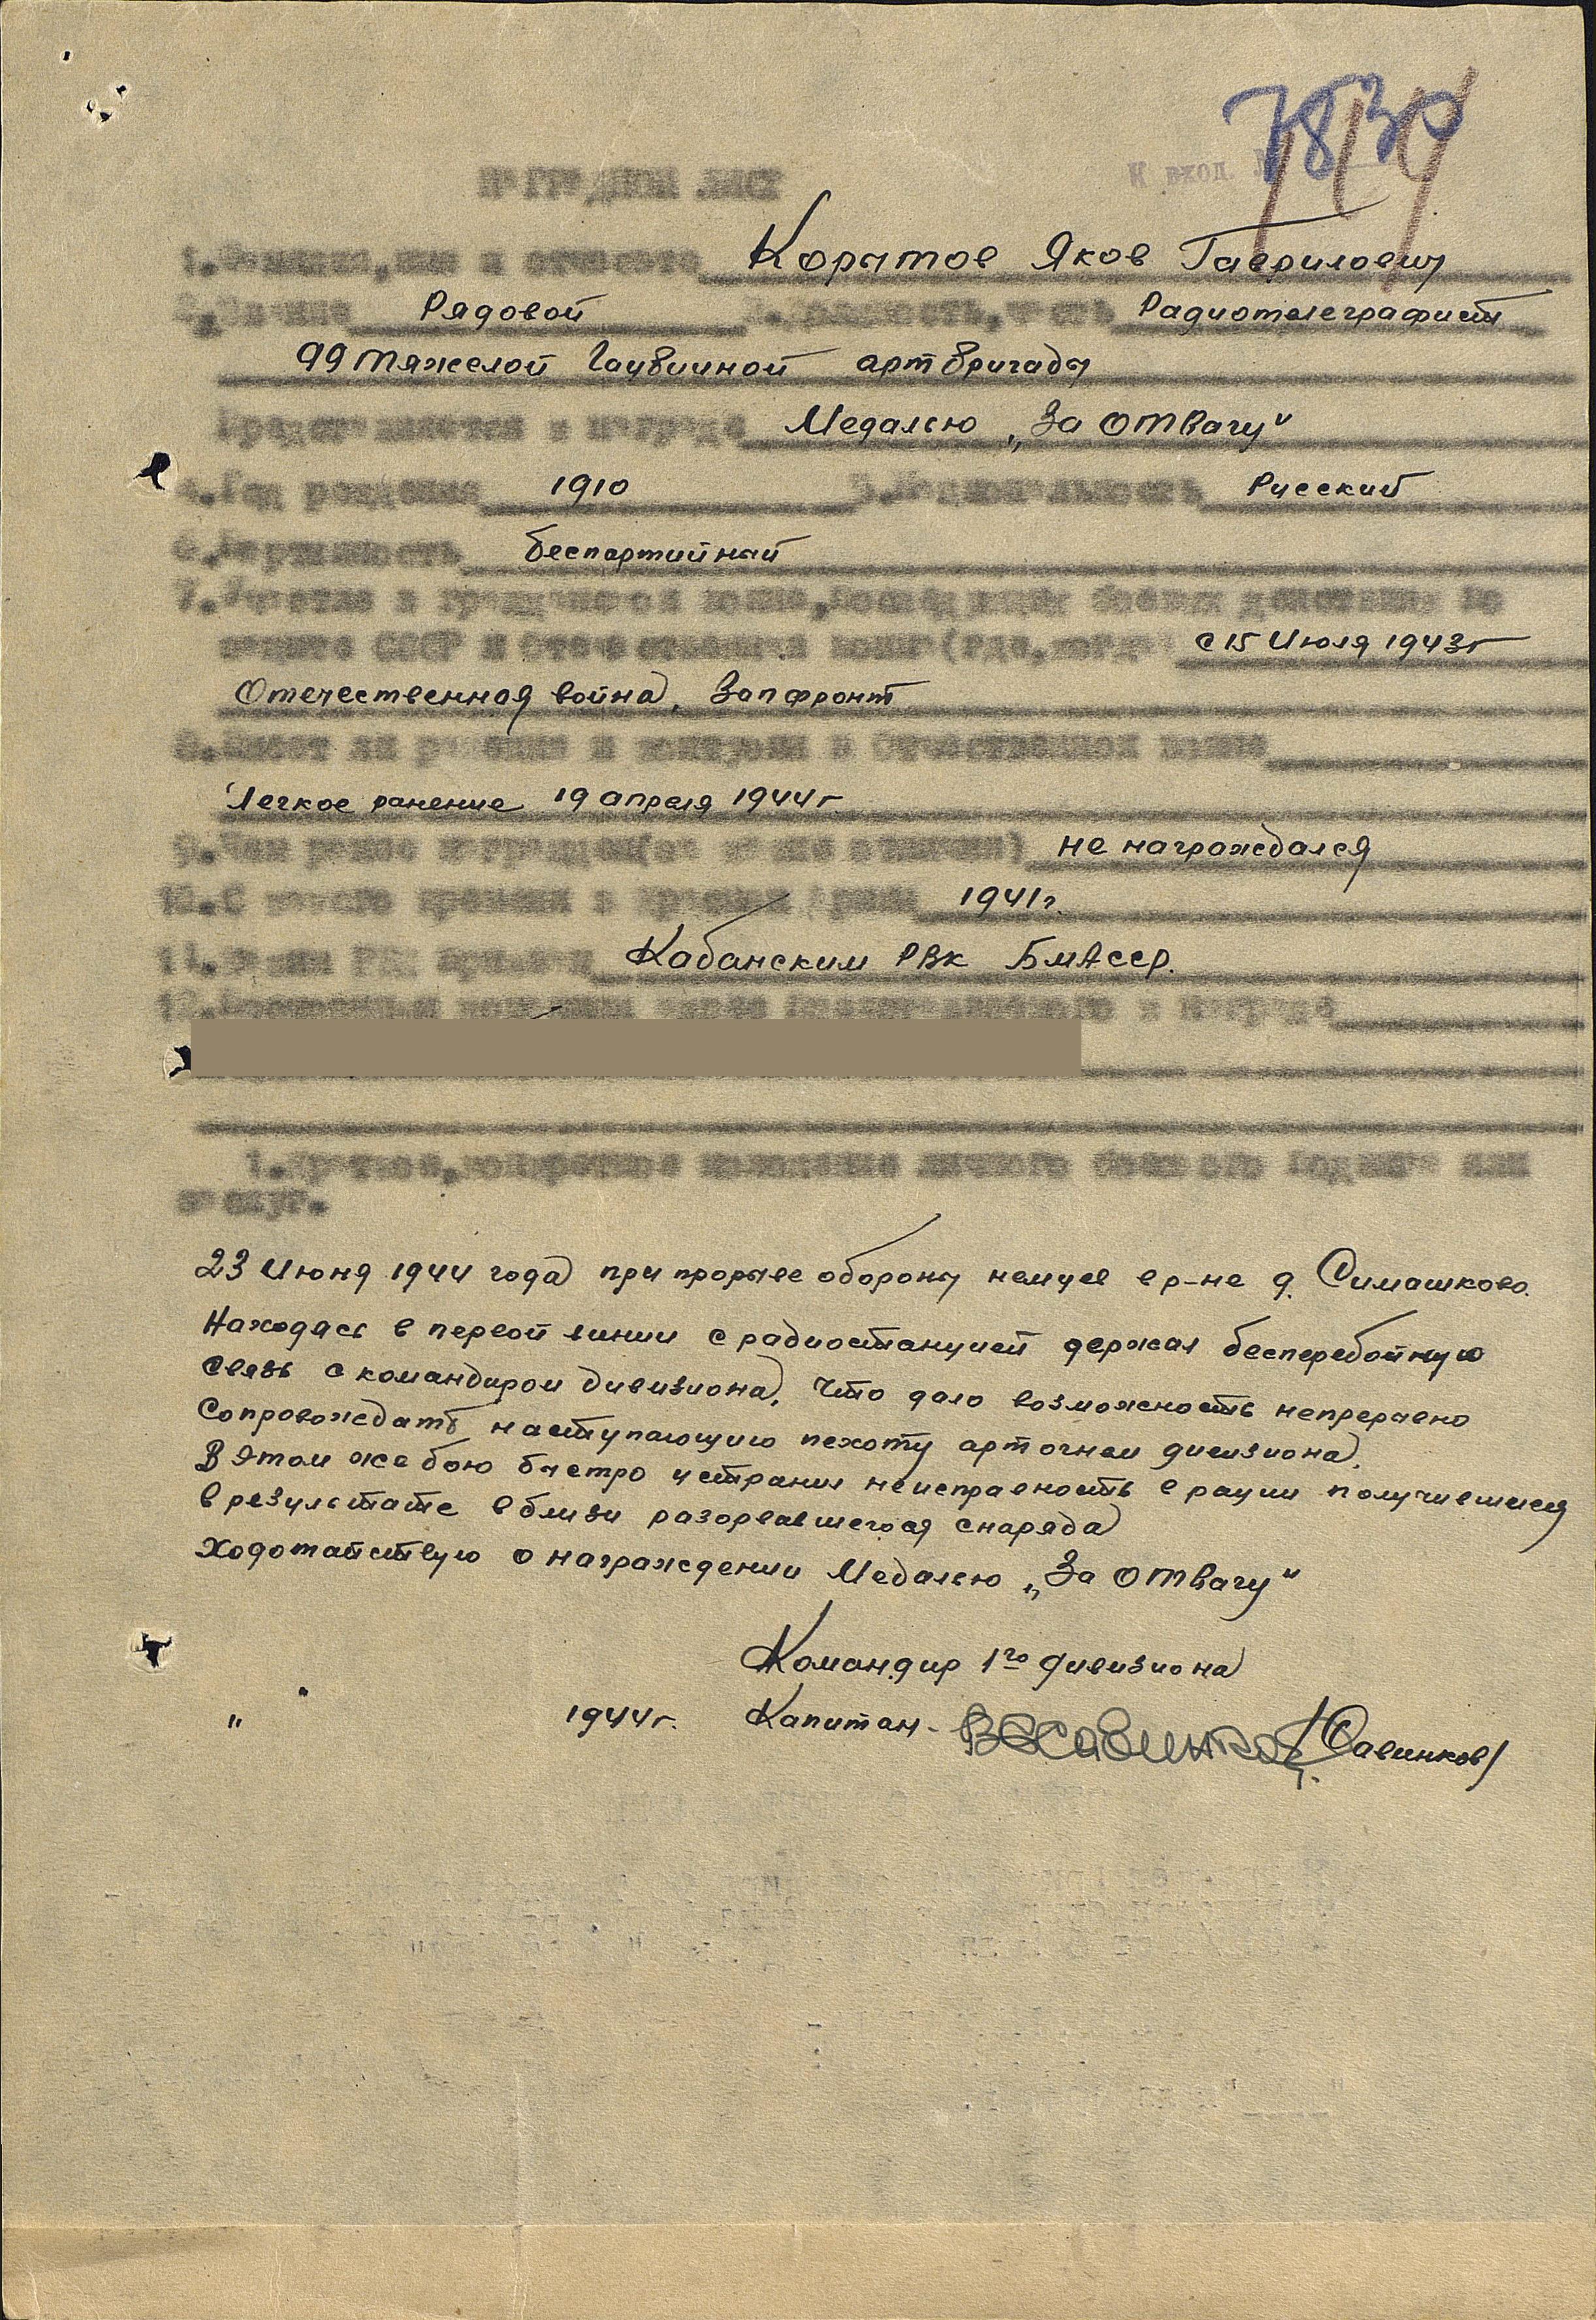 К вход. №
7830
НАГРАДНОЙ ЛИСТ
1. Фамилия, имя и отчество Корытов Яков Гаврилович
2. Звание Рядовой 3. Должность, часть Радиотелеграфист
99 тяжелой Гаубичной артбригады
Представляется к награде Медалью „За отвагу"
4. Год рождения 1910 5. Национальность Русский
6. Партийность беспартийный
7. Участие в гражданской войне, последующих боевых действиях по
защите СССР и Отечественной войне (где, когда) с 15 Июля 1943г
Отечественная война, Запфронт
8. Имеет ли ранения и контузии в Отечественной войне
Легкое ранение 19 апреля 1944г.
9. Чем ранее награжден (за какие отличия) не награждался
10. С какого времени в Красной Армии 1941г.
11. Каким РВК призван Кабанским РВК БМАССР.
12. Постоянный домашний адрес представляемого к награде
1. Краткое, конкретное изложение личного боевого подвига или
заслуг.
23 Июня 1944 года при прорыве обороны немцев в р-не д. Симашково.
Находясь в первой линии с радиостанцией держал бесперебойную
связь с командиром дивизиона, Что дало возможность непрерывно
сопровождать наступающую пехоту артогнем дивизиона.
В этом же бою быстро устранил неисправность в рации получившиеся
в результате вблизи разорвавшегося снаряда
Ходотайствую о награждении Медалью „За отвагу"
Командир 1го дивизиона
" " 1944г. Капитан - Савинков /Савинков/